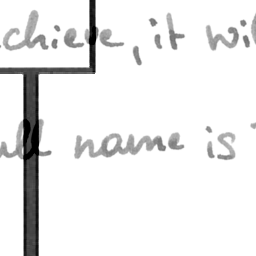 achieve, it wil
ull name is